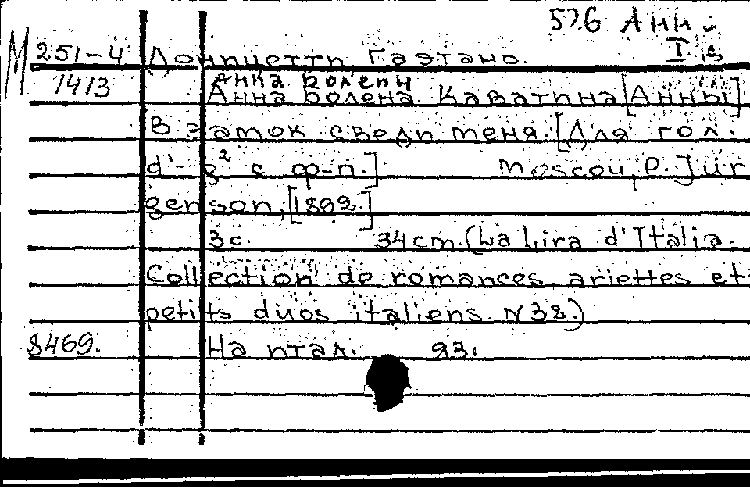 576 Анн
М 251-4 Доницетти Гаэтано. I в
1413 Анна Болены
Анна Болена Каватина [Анны]
В замок сведи меня. [Для гол.
d'-g² с ф-п.] Moscou, P. Jur
genson, [1892.]
3 с. 34 cm. (La Lira d'Italia.
Collection de romances, ariettes et
petits duos italiens. N 38.)
8469. На итал. яз.